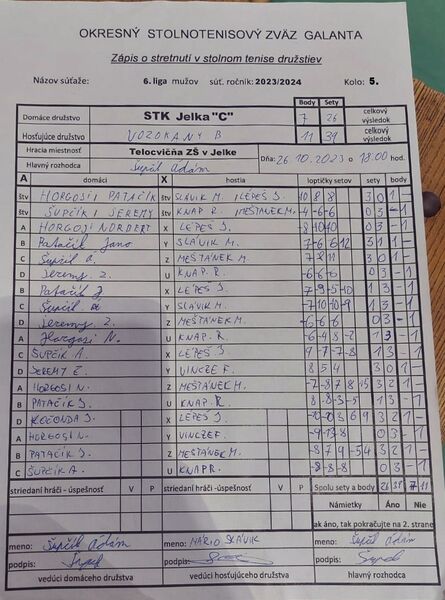 OKRESNÝ STOLNOTENISOVÝ ZVÄZ GALANTA
Zápis o stretnutí v stolnom tenise družstiev
Názov súťaže: 6. liga mužov súť. ročník: 2023/2024 Kolo: 5.
Body Sety
Domáce družstvo STK Jelka "C" 7 26 celkový výsledok
Hosťujúce družstvo VOZOKANY B 11 39 celkový výsledok
Hracia miestnosť Telocvičňa ZŠ v Jelke
Hlavný rozhodca Šupčík Ádám Dňa: 26.10.2023 o 18:00 hod.
A domáci X hostia loptičky setov sety body
štv HORGOSI PATAČIK štv SLÁVIK M. LÉPES J. 10 8 8 3 0 1 -
štv ŠUPČIK JEREMY štv KNAP R. MEŠŤÁNEK M. -4 -6 -6 0 3 - 1
A HORGOSI NORBERT X LÉPES J. -8 -10 -10 0 3 - 1
B Patačik Jano Y SLÁVIK M. 3 1 1 -
C Šupčík A. Z MEŠŤÁNEK M. 7 8 11 3 0 1 -
D Jeremy Z. U KNAP R. -6 -6 -6 0 3 - 1
B Patačik J X LÉPES J. 7 -9 -5 -10 1 3 - 1
C Šupčík Y SLÁVIK M. -7 -10 -10 -9 1 3 - 1
D Jeremy Z. Z MEŠŤÁNEK M. -6 -6 -6 0 3 - 1
A Horgosi N. U KNAP R. -6 -4 8 -2 1 3 - 1
C ŠUPČIK A. X LÉPES J. 9 -7 -7 -8 1 3 - 1
D JEREMY Z. Y VINCZE F. 8 5 4 3 0 1 -
A HORGOSI N. Z MEŠŤÁNEK M. -7 -8 7 8 15 3 2 1 -
B PATAČIK J. U KNAP R. 8 -8 -3 -5 1 3 - 1
D J. X LÉPES J. 3 6 9 3 2 1 -
A HORGOSI N. Y VINCZE F. -9 -13 -8 0 3 - 1
B PATAČIK J. Z MEŠŤÁNEK M. -8 7 9 -5 4 3 2 1 -
C ŠUPČIK A. U KNAP R. -8 -8 -8 0 3 - 1
striedaní hráči - úspešnosť V P striedaní hráči -úspešnosť V P Spolu sety a body 26 39 7 11
Námietky Áno Nie
ak áno, tak pokračujte na 2. strane
meno: Šupčík Ádám meno: MÁRIO SLÁVIK meno: Šupčík Ádám
podpis: podpis: podpis:
vedúci domáceho družstva vedúci hosťujúceho družstva hlavný rozhodca